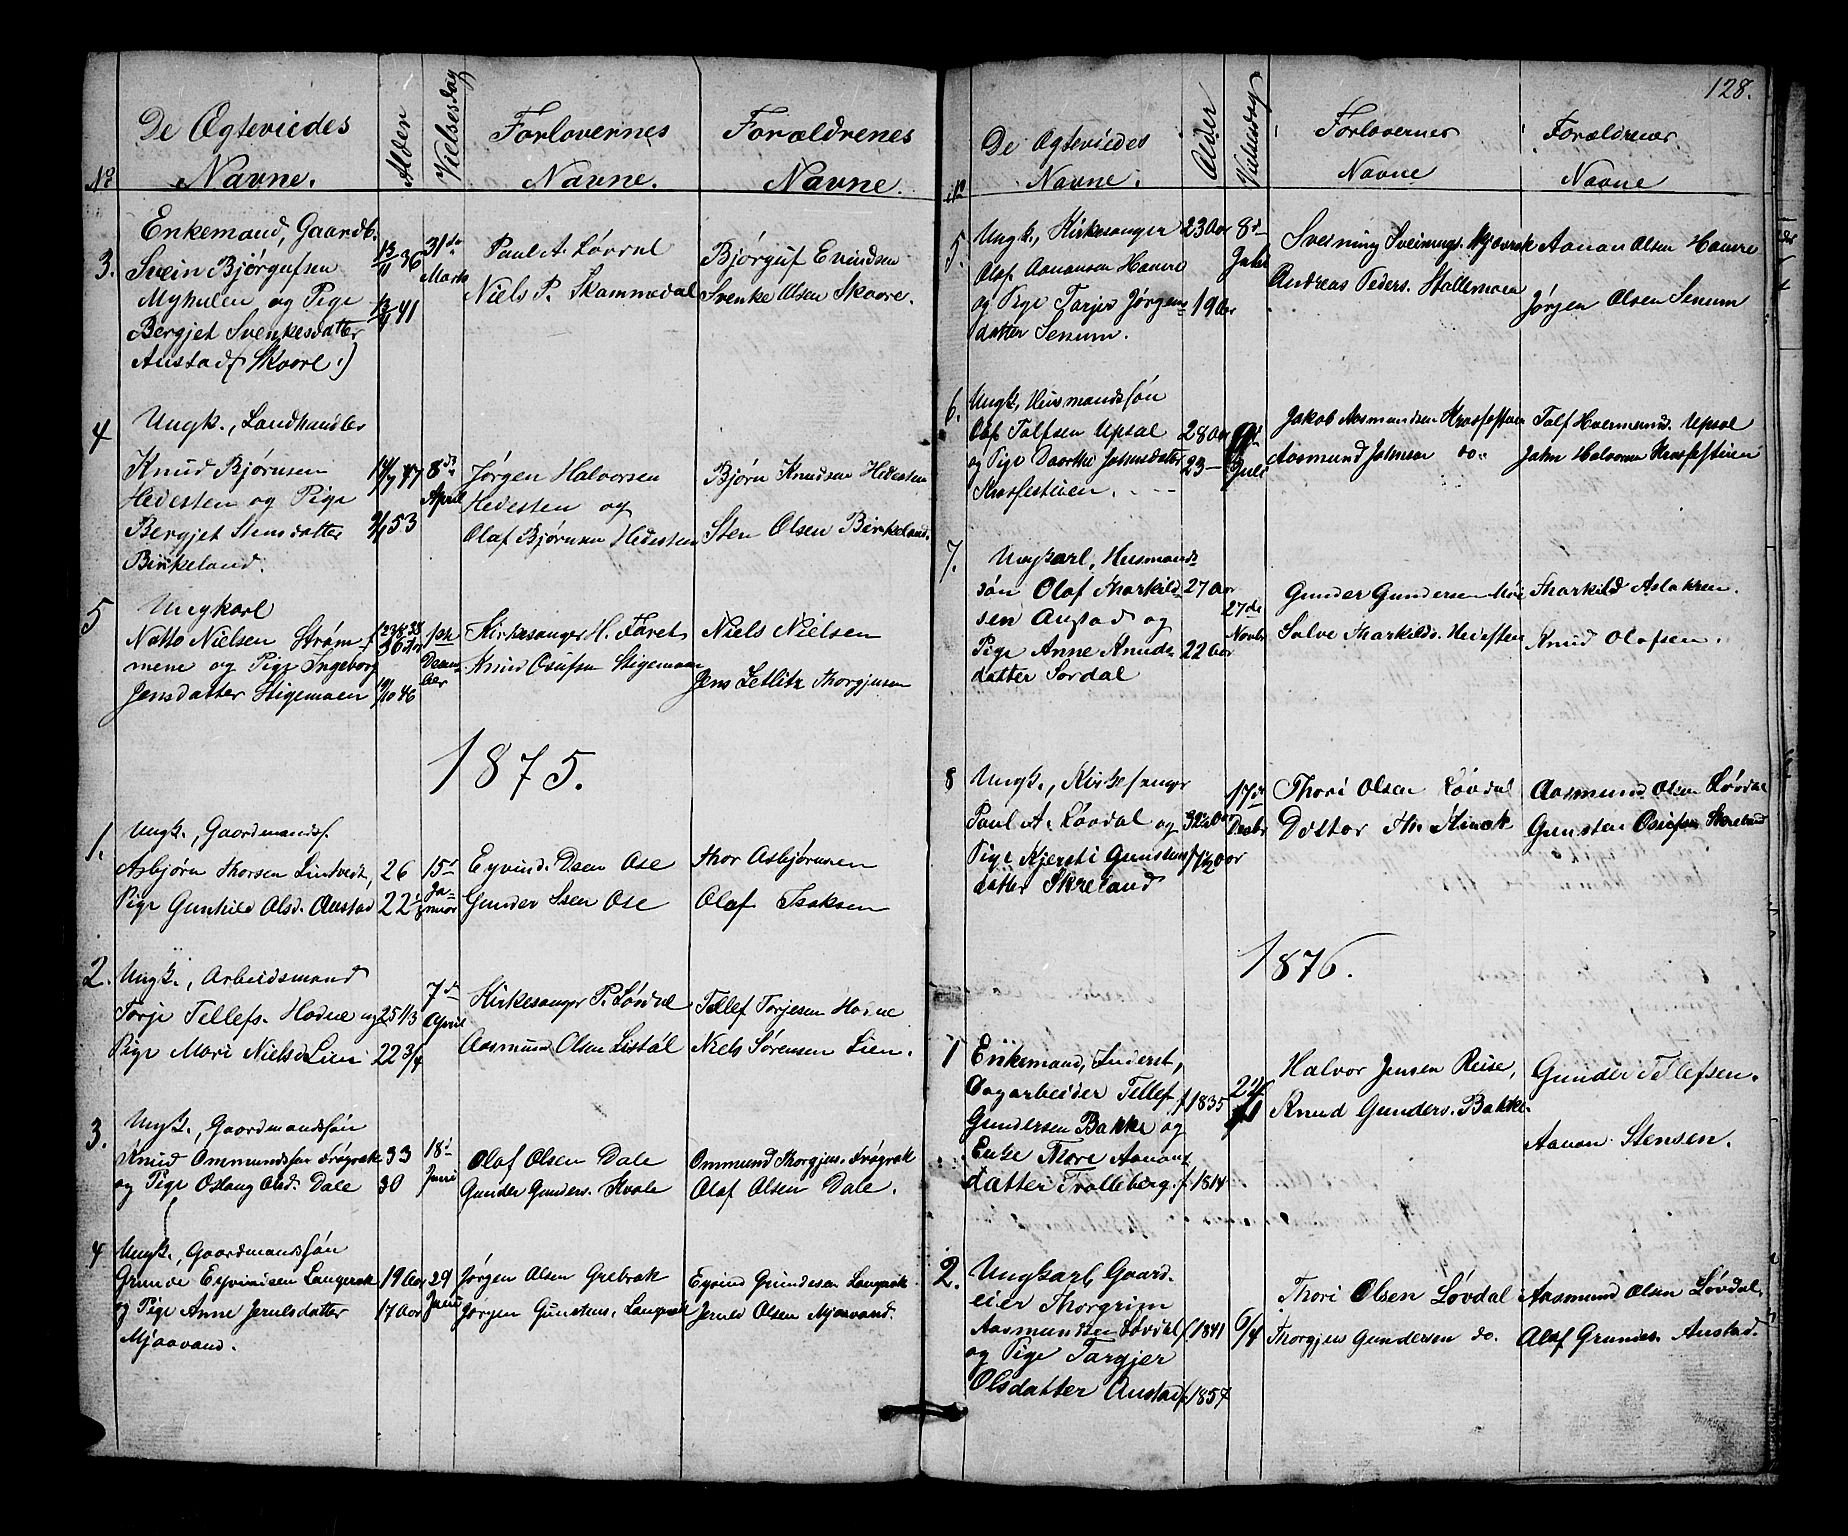 128.
No
De Ægteviedes Navne.
Alder
Vielsesdag
Forlovernes Navne.
Forældrenes Navne.
3.
Enkemand, Gaardb.
Svein Bjørgufsen
Myhulen og Pige
Bergjet Svenkesdatter
Austad (Skoorl.)
13/11 36
41
31te Marts
Paul A. Løvdal
Niels P. Skammedal
Bjørguf Evindsen
Svenke Olsen Skaare.
4
Ungk., Landhandler
Knud Bjørnsen
Hedesten og Pige
Bergjet Stensdatter
Birkeland.
47
53
8de April
Jørgen Halvorsen
Hedesten og
Olaf Bjørnsen Hedesten
Bjørn Knudsen Hedesten
Sten Olsen Birkeland.
5
Ungkarl
Natto Nielsen Strøm-
mene og Pige Ingeborg
Jensdatter Stigemoen
36
10/10 46
1ste Decem ber
Kirkesanger H. Faret
Knud Osufsen Stigemoen
Niels Nielsen
Jens Zetlitz Thorgjusen
1875.
1.
Ungk., Gaardmands.
Asbjørn Thorsen Lindtvedt,
Pige Gunhild Olsd. Austad
26
22 1/2
15d Januar
Eyvind Osen Ose
Gunder Osen Ose
Thor Asbjørnsen
Olaf Isaksen
2.
Ungk., Arbeidsmand
Torje Tellefs. Hodne og
Pige Mari Nielsd. Lien
25 1/3
22 3/4
7de April
Kirkesanger P. Løvdal
Aasmund Olsen Listøl
Tellef Torjesen Hodne
Niels Sørensen Lien.
3.
Ungk., Gaardmandssøn
Knud Ommundsen Frøysok
og Pige Oslaug Olsd. Dale
33
30
18d Juni
Olaf Olsen Dale
Gunder Gunders. Kvale
Ommund Thorgjus. Frøysok
Olaf Olsen Dale.
4
Ungk., Gaardmandssøn
Grunde Eyvindsen Langerak
og Pige Anne Jernlsdatter
Mjaavand.
19 Aar
17 Aar
29 Juni
Jørgen Olsen Grebrok
Jørgen Gunstens. Langerak
Eyvind Grundesen Langerak
Jernld Olsen Mjaavand.
No
De Ægteviedes Navne.
Alder
Vielsesdag
Forlovernes Navne
Forældrenes Navne
5.
Ungk., Kirkesanger
Olaf Aanonsen Haavre
og Pige Targjer Jørgens-
datter Senum.
23 Aar
19 Aar
8d Juli
Sveinung Sveinungs. Kjævrok
Andreas Peders. Stallemoen
Aanon Olsen Haavre
Jørgen Olsen Senum
6.
Ungk., Husmandssøn
Olaf Talfsen Upsal
og Pige Daarthe Johnsdatter
Krosfestuen.
28 Aar
23 —
Juli
Jakob Aasmundsen Krosfestuen
Aasmund Johnsen do.
Talf Hermunds. Upsal
John Halvorsen Krosfestuen
7.
Ungkarl, Husmands-
søn Olaf Tharkild-
sen Austad og
Pige Anne Knuds-
datter Sordal
27 Aar
22 Aar
27de Novbr
Gunder Gundersen Moe
Salve Tharkilds. Hedesten
Tharkild Aslaksen.
Knud Olafsen.
8
Ungk., Kirkesanger
Paul A. Løvdal og
Pige Kjersti Gunstens-
datter Skreland
32 1/2 Aar
17 1/2 Aar
17de Decbr
Thori Olsen Løvdal
Doktor Th. Kinck
Aasmund Olsen Løvdal
Gunsten Osufsen Skreland
1876.
1
Enkemand, Inderst,
Dagarbeider Tellef
Gundersen Bakke og
Enke Thore Aanons-
datter Trolleberg.
f. 1835
f. 1814
Halvor Jensen Reise,
Knud Gunders. Bakke.
Gunder Tellefsen.
Aanon Stensen.
2.
Ungkarl Gaard-
eier Thorgrim
Aasmundsen Løvdal
og Pige Targjer
Olsdatter Austad
f. 1841
f. 1857
6/4
Thori Olsen Løvdal
Thorgjus Gundersen do.
Aasmund Olsen Løvdal,
Olaf Grundes. Austad.